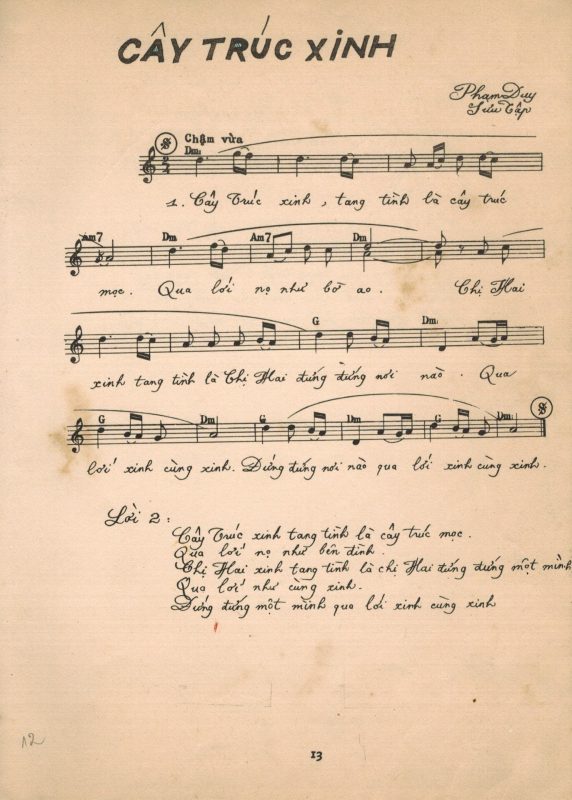 CÂY TRÚC XINH
Phạm Duy
Sưu Tập
Chậm vừa
Dm
1. Cây Trúc xinh, tang tình là cây trúc
Am7 Dm Am7 Dm
mọc. Qua lối nọ như bờ ao. Chị Hai
G Dm
xinh tang tình là Chị Hai đứng đứng nơi nào. Qua
G Dm G Dm Dm
lối xinh cùng xinh. Đứng đứng nơi nào qua lối xinh cùng xinh.
Lời 2:
Cây Trúc xinh tang tình là cây trúc mọc.
Qua lối nọ như bên đình.
Chị Hai xinh tang tình là chị Hai đứng đứng một mình
Qua lối như cùng xinh.
Đứng đứng một mình qua lối xinh cùng xinh
12
13